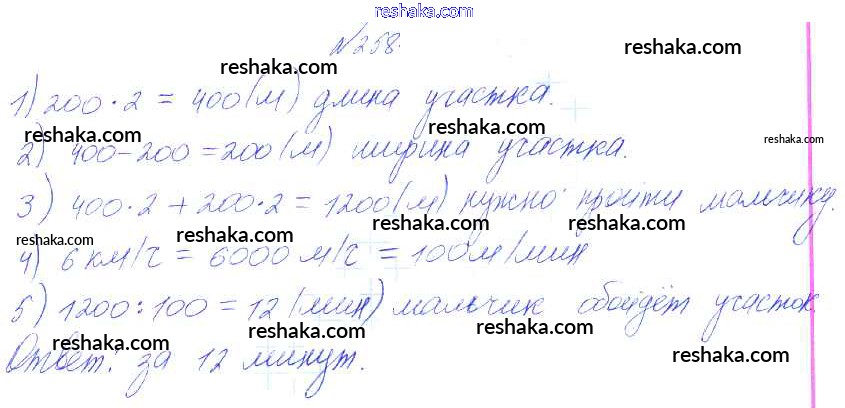 reshaka.com
№258.
reshaka.com reshaka.com
reshaka.com
1) 200·2 = 400(м) длина участка.
reshaka.com reshaka.com
reshaka.com
2) 400-200 = 200(м) ширина участка.
reshaka.com reshaka.com
3) 400·2 + 200·2 = 1200(м) нужно пройти мальчику.
reshaka.com reshaka.com reshaka.com
4) 6 км/ч = 6000 м/ч = 100м/мин
reshaka.com reshaka.com
5) 1200:100 = 12 (мин) мальчик обойдёт участок.
reshaka.com reshaka.com
Ответ: за 12 минут.
reshaka.com reshaka.com